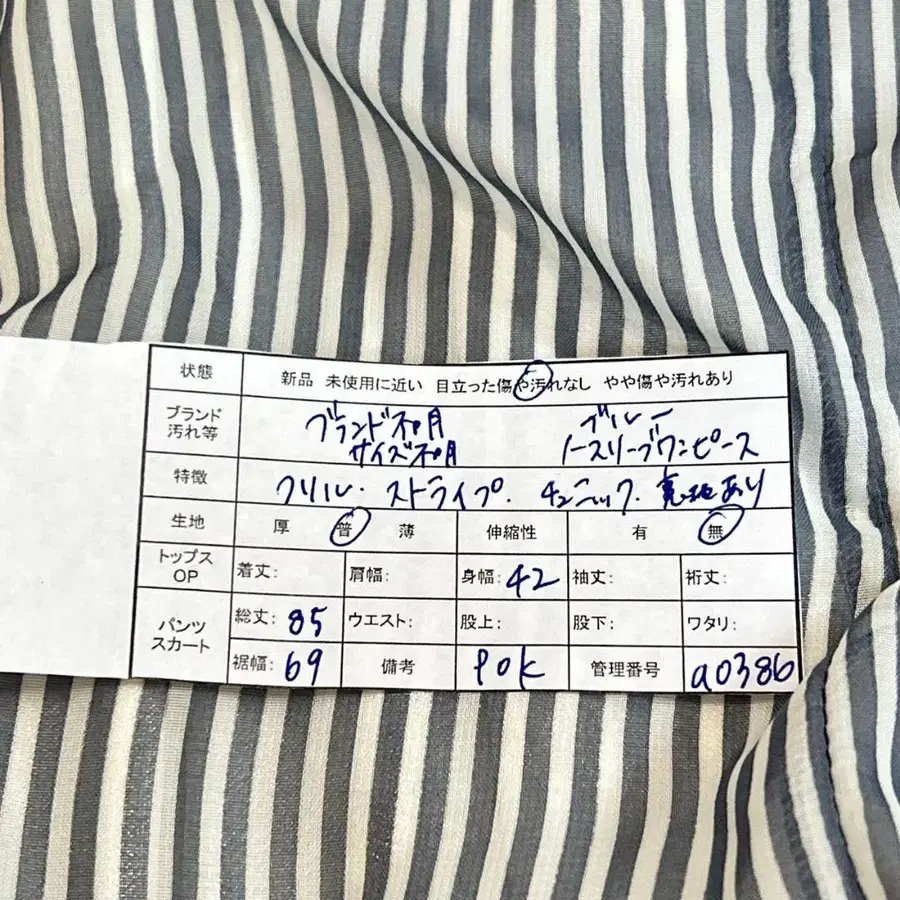 状態 新品 未使用に近い 目立った傷や汚れなし やや傷や汚れあり
ブランド 汚れ等 ブランド不明 ブルー
サイズ不明 ノースリーブワンピース
特徴 フリル・ストライプ・チュニック・裏地あり
生地 厚 普 薄 伸縮性 有 無
トップス OP 着丈: 肩幅: 身幅: 42 袖丈: 裄丈:
パンツ スカート 総丈: 85 ウエスト: 股上: 股下: ワタリ:
裾幅: 69 備考 POK 管理番号 a0386